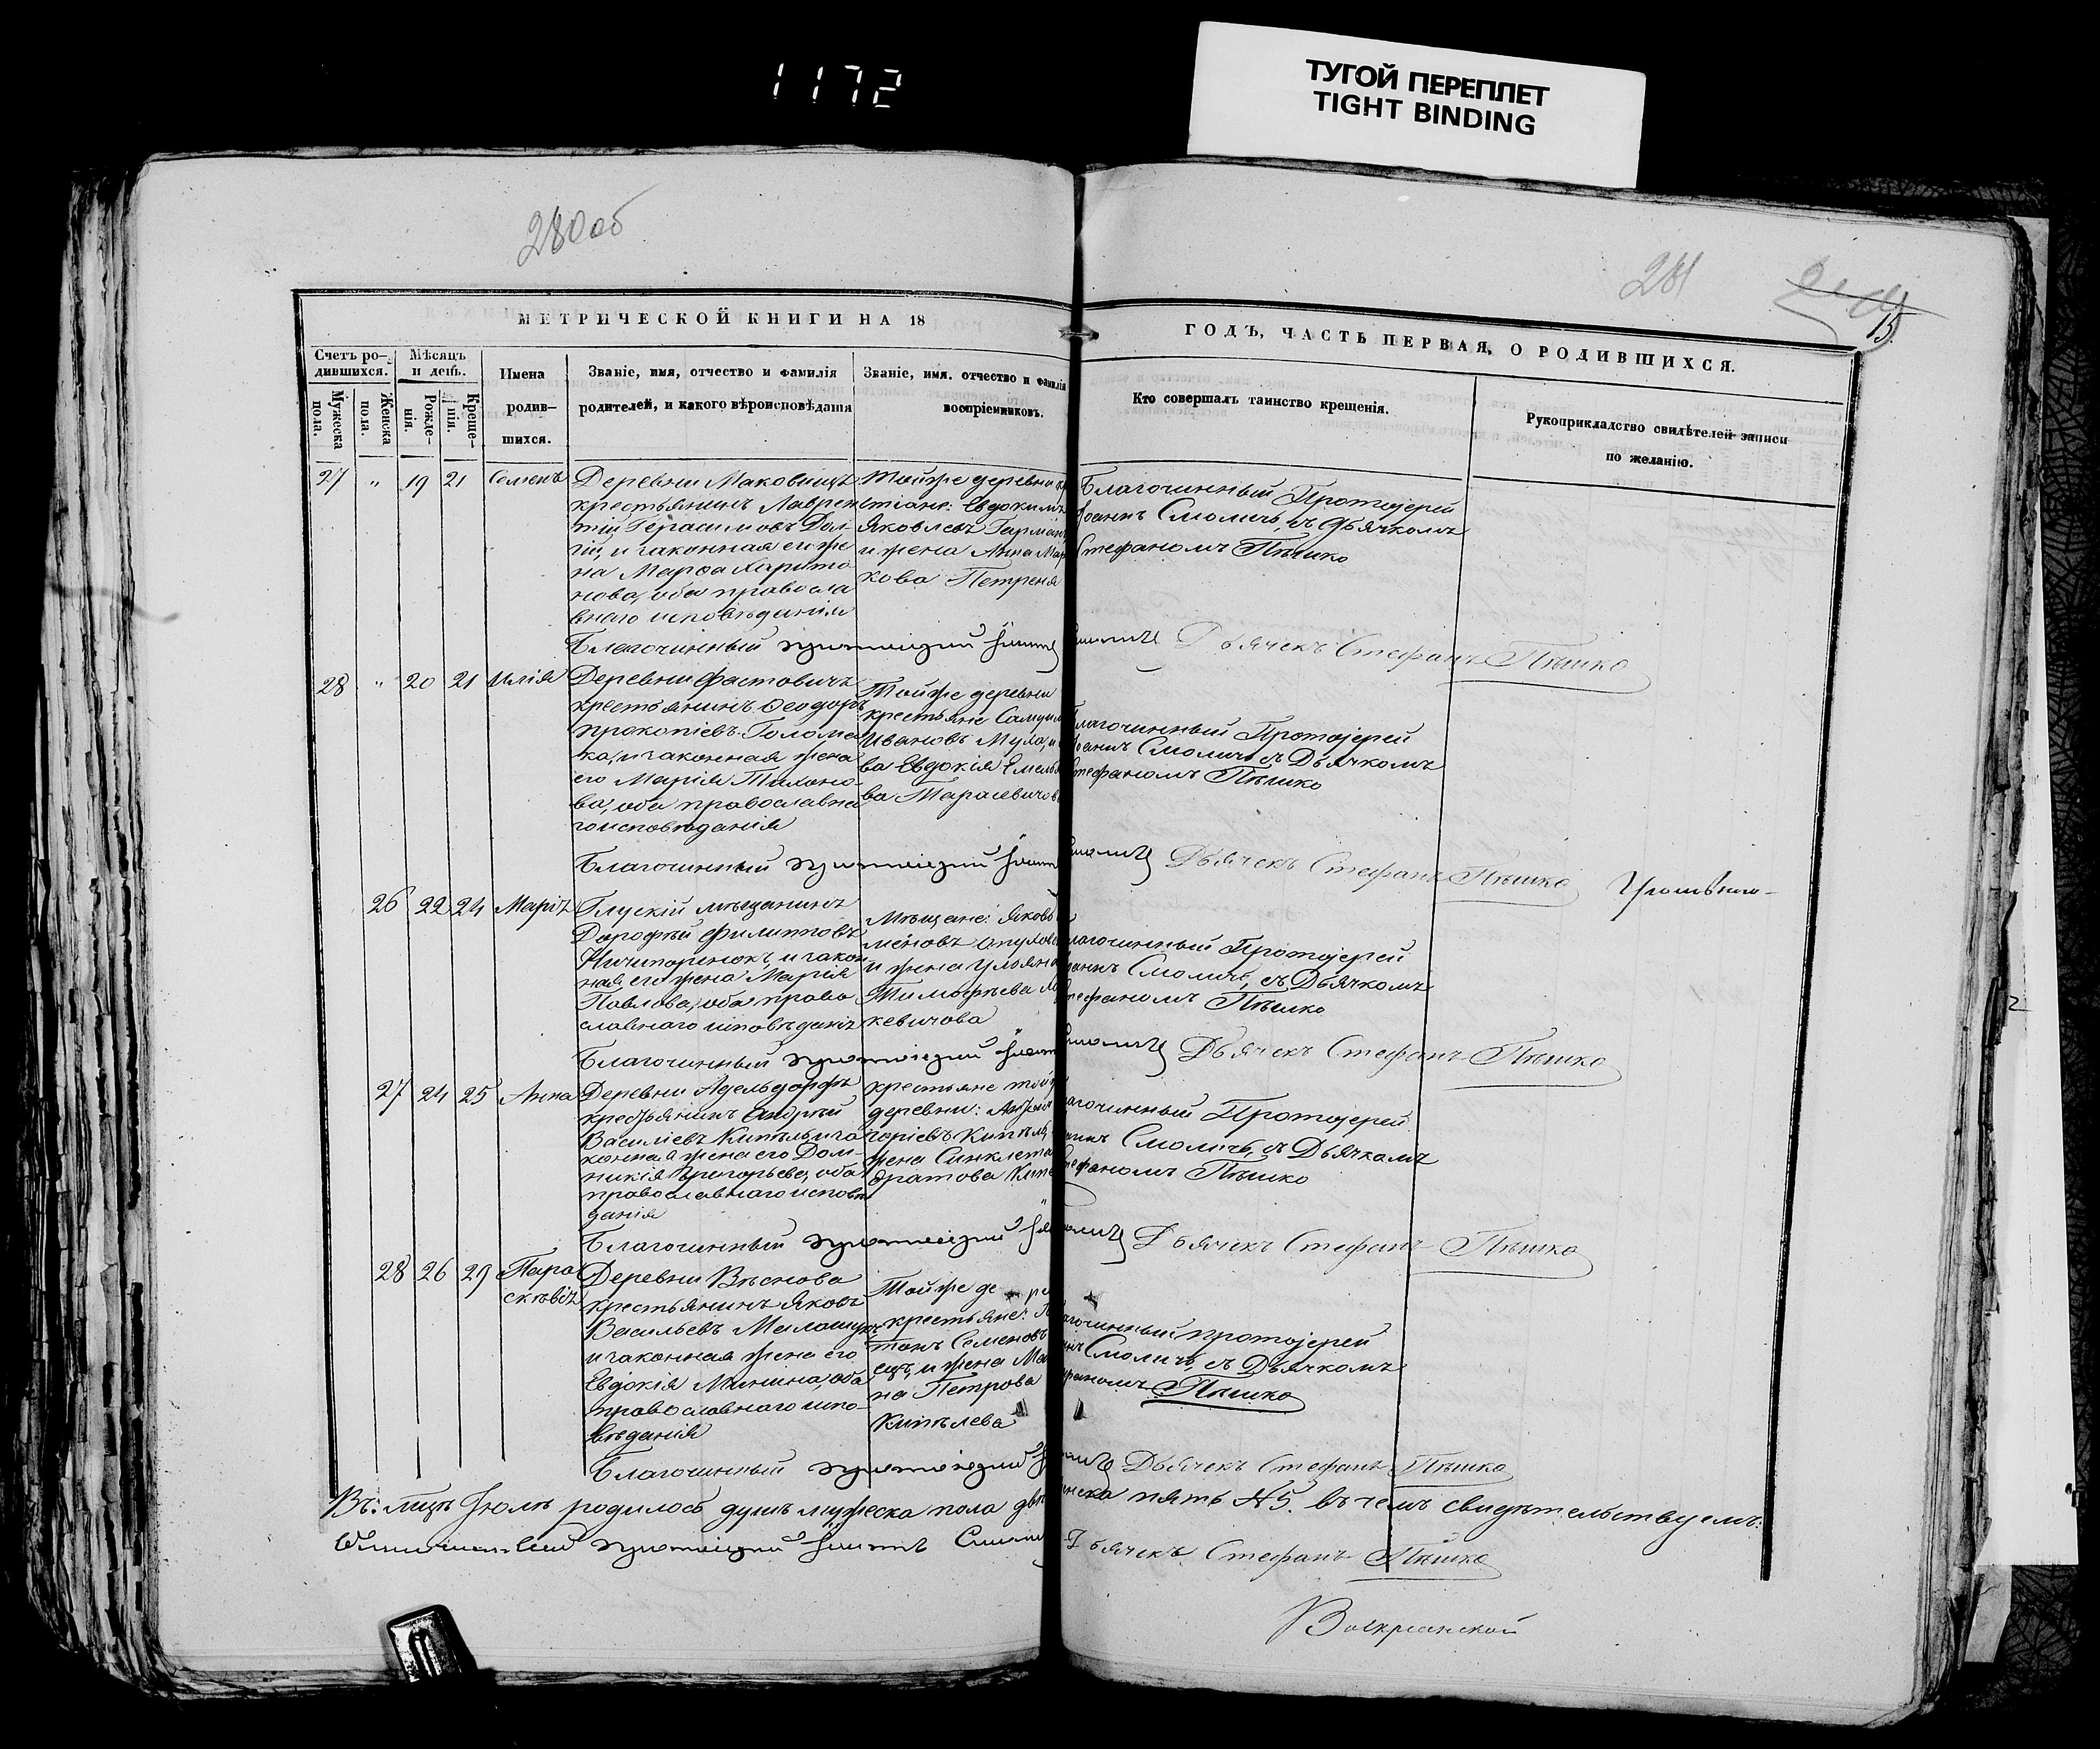 1172
ТУГОЙ ПЕРЕПЛЕТ
TIGHT BINDING
280об
281
15.
МЕТРИЧЕСКОЙ КНИГИ НА 18
ГОДЪ, ЧАСТЬ ПЕРВАЯ, О РОДИВШИХСЯ.
Счетъ ро-
дившихся.
Мужеска пола.
Женска пола.
Мѣсяцъ
и день.
Рожде-
нія.
Креще-
нія.
Имена
родив-
шихся.
Званіе, имя, отчество и фамилія
родителей, и какого вѣроисповѣданія
Званіе, имя, отчество и фамилія
воспріемниковъ.
Кто совершалъ таинство крещенія.
Рукоприкладство свидѣтелей записи
по желанію.
27 " 19 21 Семенъ
Деревни Маковищъ
крестьянинъ Лаврен
тій Герасимовъ Дол-
гій, и законная его же
на Марѳа Харито
нова, оба правосла
внаго исповѣданія
Тойже деревни кр
стіане: Евдокимъ
Яковлевъ
и жена Анна Мар
кова
Благочинный Протоіерей
Іоаннъ Смоличъ, съ Дьячкомъ
Стефаномъ Пѣшко
Благочинный протоіерей
Смоличъ Дьячекъ Стефанъ Пѣшко
28 " 20 21 Илія
Деревни Фастовичъ
крестьянинъ Ѳеодоръ
Прокопіевъ
и законная жена
его Марія Тихоно-
ва, оба православна
го исповѣданія
Тойже деревни
крестьяне
Ивановъ Муха, и
ва Евдокія Емелья
ва Тарасевичов
Благочинный Протоіерей
Іоаннъ Смоличъ съ Дьячкомъ
Стефаномъ Пѣшко
Благочинный протоіерей
Смоличъ Дьячекъ Стефанъ Пѣшко
26 22 24 Марія
Глускій мѣщанинъ
Дорофѣй Филипповъ
Ничипоренокъ, и закон
ная его жена Марія
Павлова, оба право
славнаго исповѣданія
Мѣщане: Яковъ
и жена Ульяна
Тимофѣева
кевичова
лагочинный Протоіерей
оаннъ Смоличъ, съ Дьячкомъ
тефаномъ Пѣшко
Благочинный протоіерей
Смоличъ Дьячекъ Стефанъ Пѣшко
27 24 25 Анна
Деревни Адельдорфъ
крестьянинъ Андрей
Василіевъ Кипѣль и за
конная жена его Дом-
никія Григорьева, оба
православнаго исповѣ
данія
крестьяне той
деревни:
жена Синклета
дратова Кипе
агочинный Протоіерей
аннъ Смоличъ, съ Дьячкомъ
тефаномъ Пѣшко
Благочинный протоіерей
Дьячекъ Стефанъ Пѣшко
28 26 29 Пара
скѣвія
Деревни Вѣснова
крестьянинъ Яковъ
Васильевъ
и законная жена его
Евдокія Минина, оба
православнаго испо-
вѣданія
Тойже де ре
крестьяне:
Семеновъ
и жена
на Петрова
Кипѣлева
агочинный протоіерей
ннъ Смоличъ, съ Дьячкомъ
фаномъ Пѣшко
Благочинный протоіерей
Дьячекъ Стефанъ Пѣшко
Въ мцѣ Іюлѣ родилось душъ мужеска пола двѣ
нска пять №5. въ чемъ свидѣтельствуемъ:
протоіерей Іоаннъ Смоли
Дьячекъ Стефанъ Пѣшко